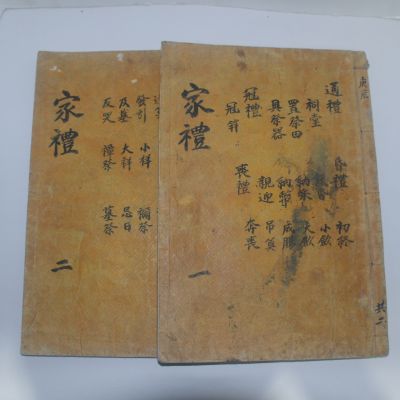 通禮
祠堂
置祭田
具祭器
冠禮
冠 笄
昏禮
納采
納幣
親迎
喪禮
初終
小斂
大斂
成服
吊奠
奔喪
家禮
一
共二
發引
及墓
反哭
小祥
大祥
禫祭
禰祭
忌日
墓祭
家禮
二